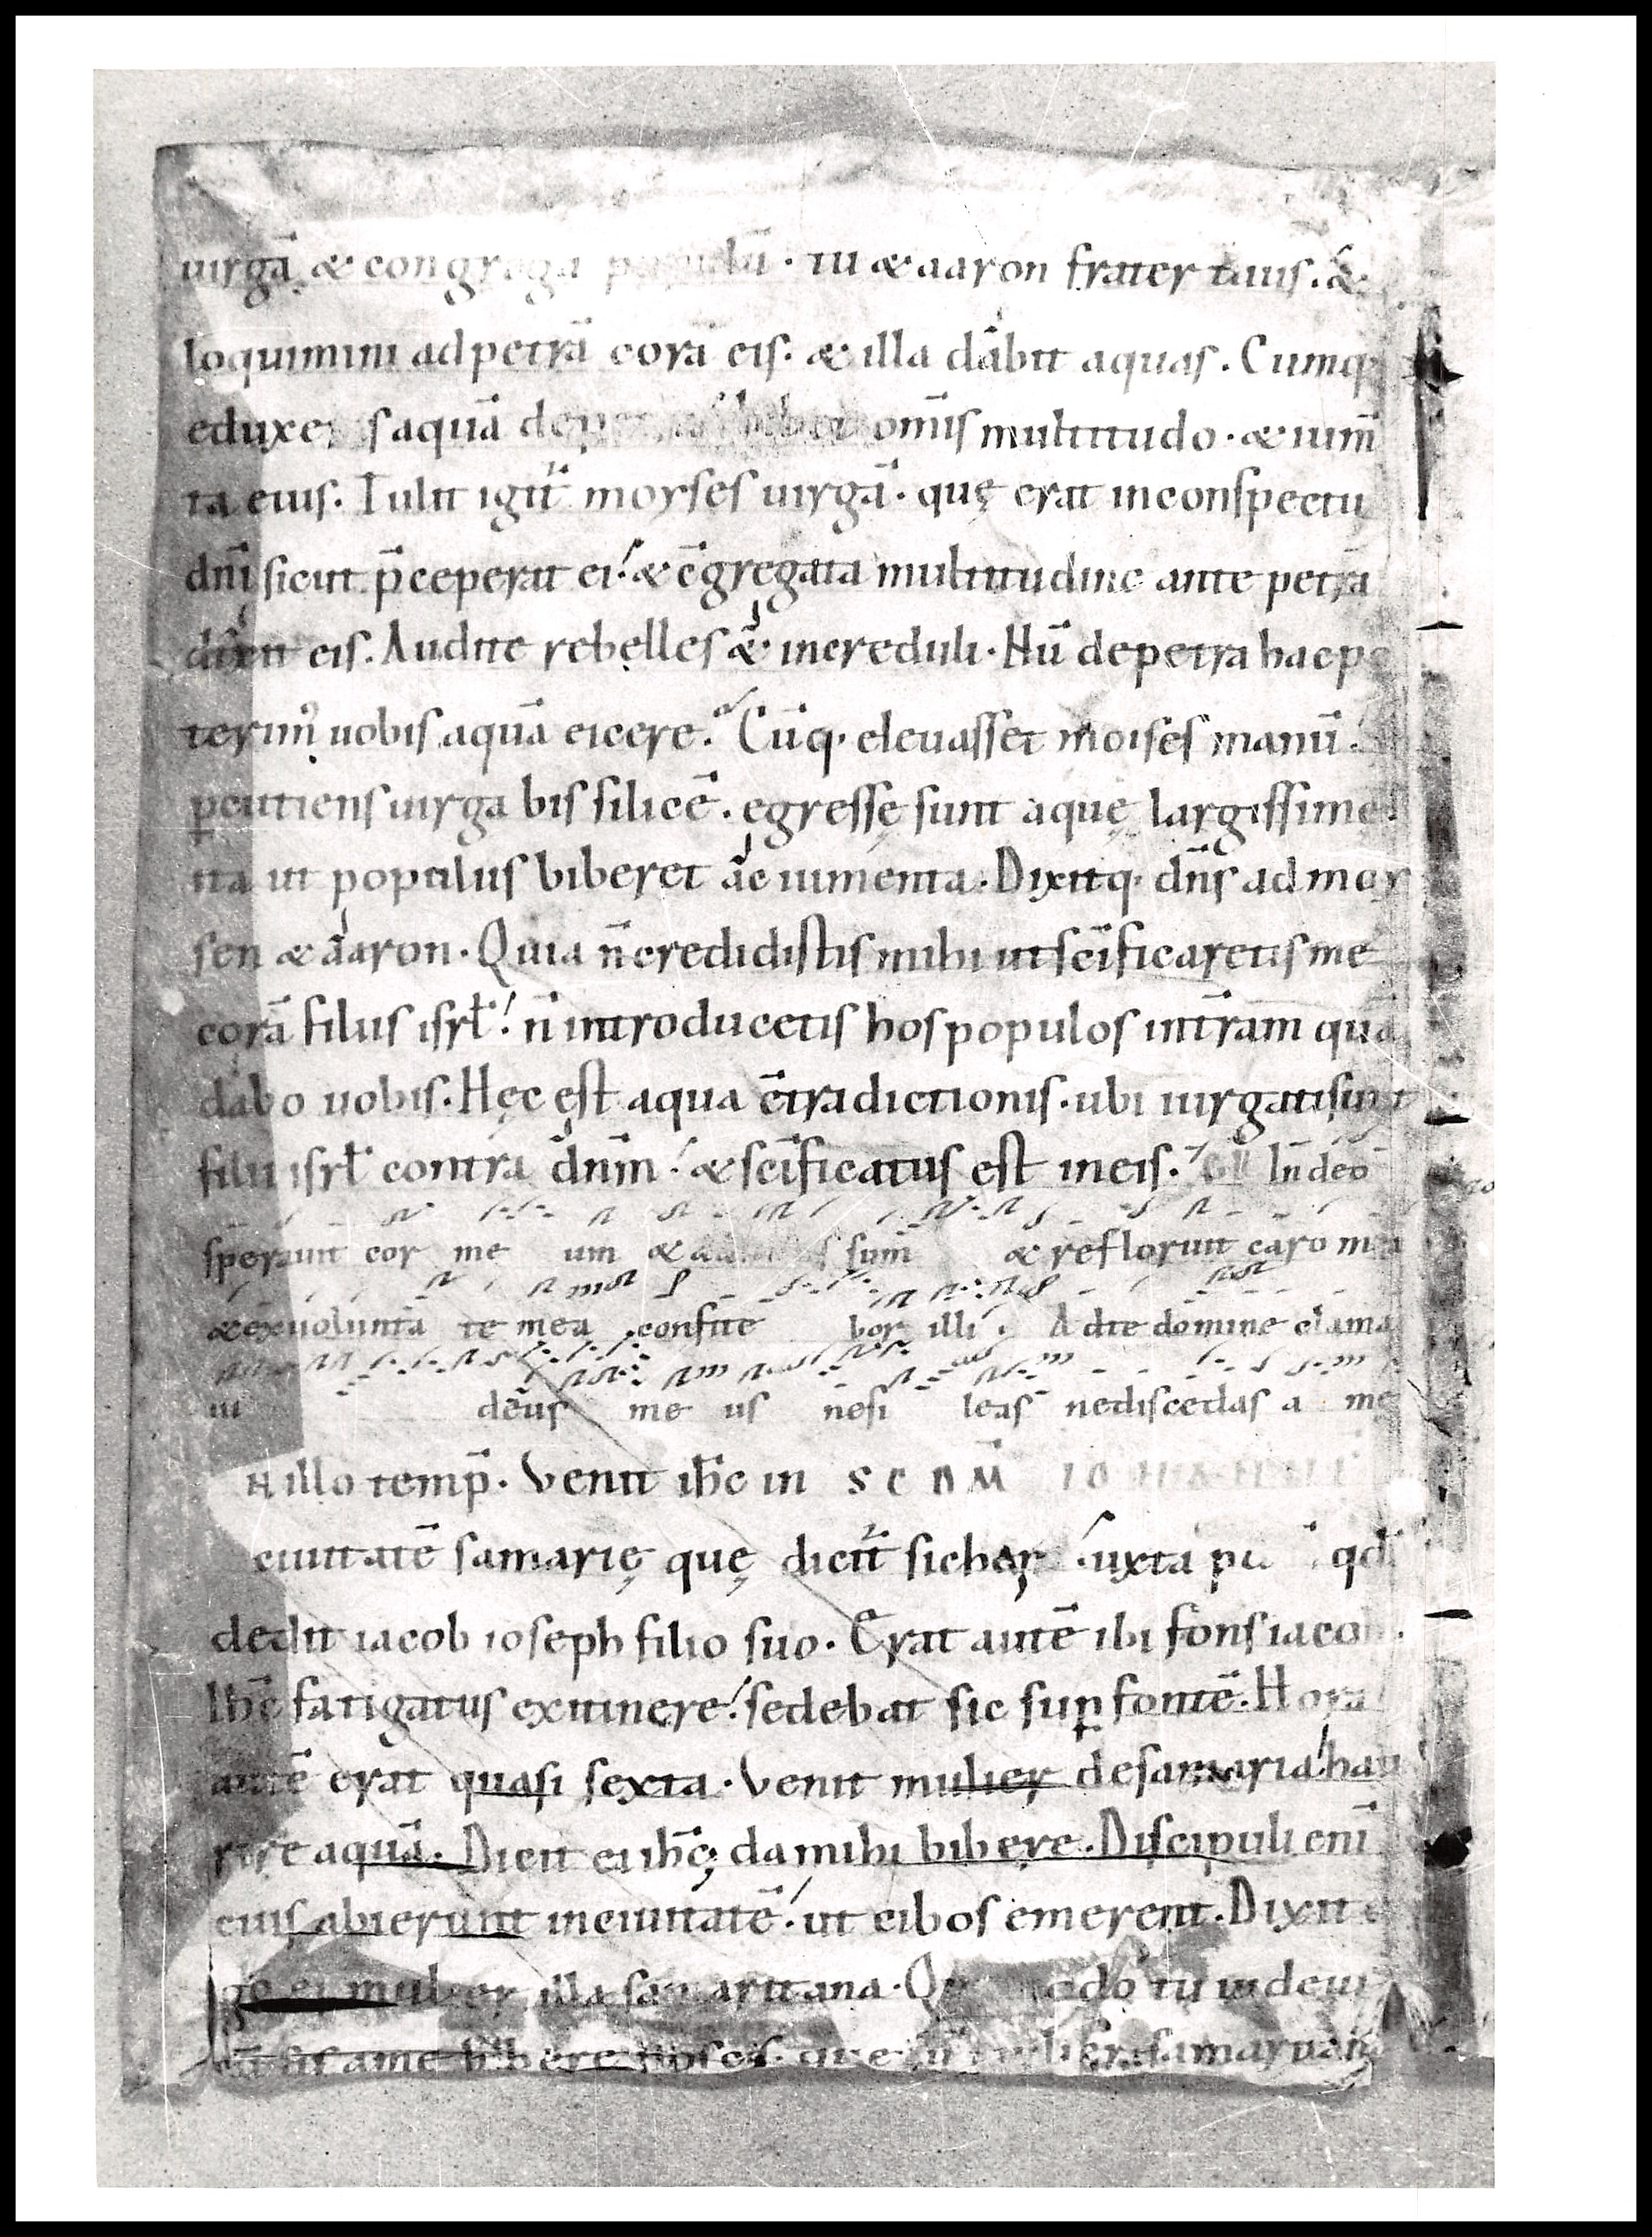 uirgā & congrega populū · tu & aaron frater tuus . &
loquimini ad petrā corā eis . & illa dabit aquas . Cumq;
eduxeris aquā de petra bibet om̄is multitudo · & ium̄
ta eius . Tulit igit̄ moyses uirgā · quę erat in conspectu
dn̄i sicut p̄ceperat ei . & c̄gregata multitudine ante petrā
dixit eis . Audite rebelles & increduli · Nū de petra hac po
terim᾽ uobis aquā eicere . Cūq; eleuasset moises manū .
ꝑcutiens uirga bis silicē . egressę sunt aquę largissimę .
ita ut populus biberet ac iumenta . Dixitq; dn̄s ad moy
sen & aaron . Quia n̄ credidistis mihi ut sc̄ificaretis me
corā filiis isrł . n̄ introducetis hos populos in t̄ram quā
dabo uobis . Hęc est aqua c̄tradictionis . ubi iurgati sunt
filii isrł contra dn̄m . & sc̄ificatus est in eis . GR̄ In deo
sperauit cor me um & sum & refloruit caro mea
& ex uoluntā te mea confite bor illi . Ad te domine clama
ui deus me us ne si leas ne discedas a me
N illo temp̄ . Venit ih̄c in S C D M̄ IOHANNE
ciuitatē samarię quę dicit̄ sichar . iuxta qd̄
dedit iacob ioseph filio suo . Erat autē ibi fons iacob .
Ih̄c fatigatus ex itinere . sedebat sic suꝑ fontē . Hora
autē erat quasi sexta . Venit mulier de samaria hau
rire aquā . Dicit ei ih̄c ; da mihi bibere . Discipuli enī
eius abierunt in ciuitatē . ut cibos emerent . Dixit e
go ei mulier illa samaritana . Quomodo tu iudeus
cū sis a me bibere poscis . que sū mulier samaritana